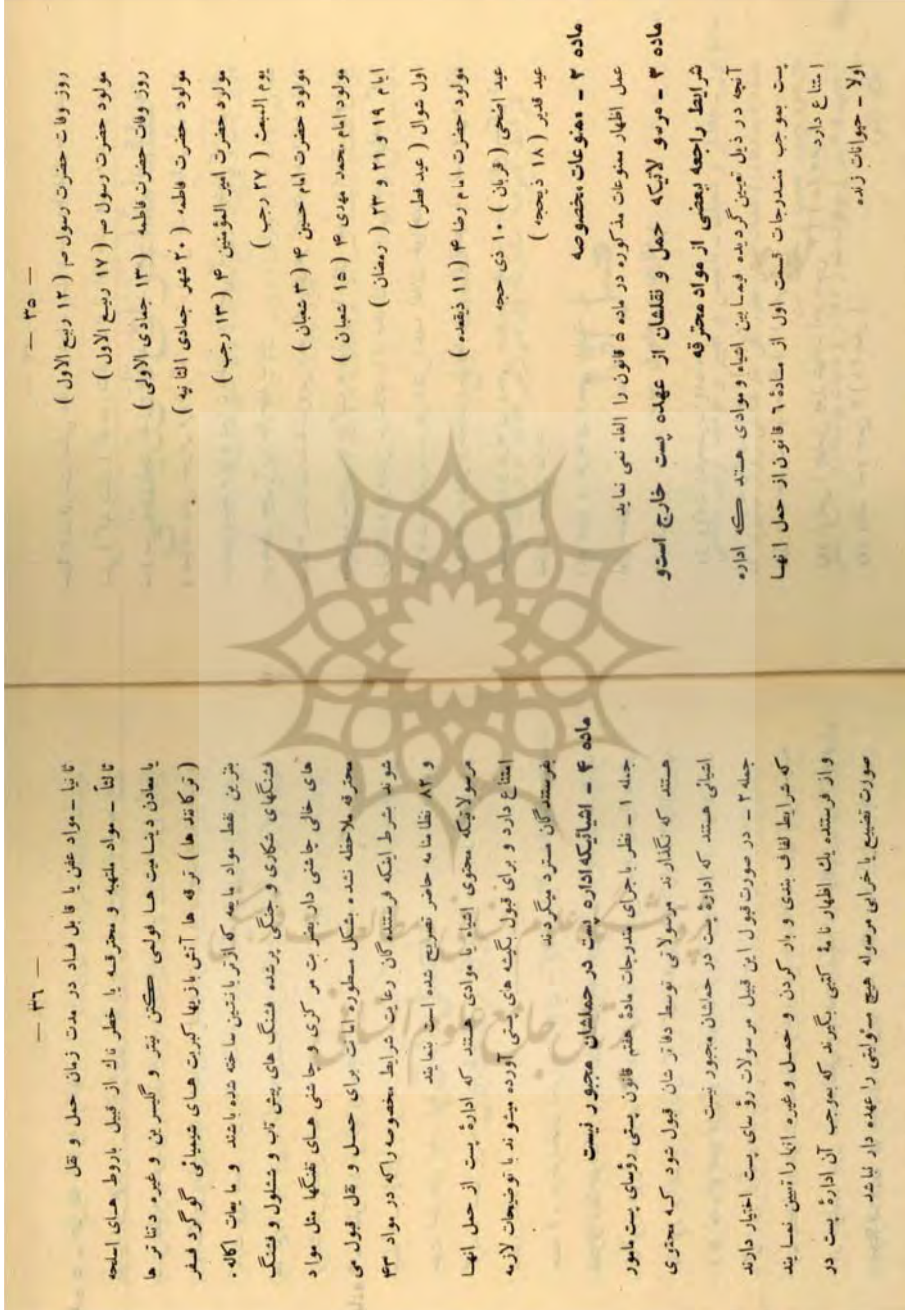 — ۳۵ —
روز وفات حضرت رسول ص ( ۱۲ ربیع الاول )
مولود حضرت رسول ص ( ۱۷ ربیع الاول )
روز وفات حضرت فاطمه ( ۱۳ جمادی الاولی )
مولود حضرت فاطمه ( ۲۰ شهر جمادی الثانیه )
مولود حضرت امیر المؤمنین ۴ ( ۱۳ رجب )
یوم المبعث ( ۲۷ رجب )
مولود حضرت امام حسین ۴ ( ۳ شعبان )
مولود امام محمد مهدی ۴ ( ۱۵ شعبان )
ایام ۱۹ و ۲۱ و ۲۳ ( رمضان )
اول شوال ( عید فطر )
مولود حضرت امام رضا ۴ ( ۱۱ ذیقعده )
عید اضحی ( قربان ) ۱۰ ذی حجه
عید غدیر ( ۱۸ ذیحجه )
ماده ۲ - ممنوعات مخصوصه
عمل اظهار ممنوعات مذکوره در ماده ۵ قانون را الغاء نمی نماید
ماده ۳ - مرسولاتیکه حمل و نقلشان از عهده پست خارج است و
شرایط راجعه ببعضی از مواد محترقه
آنچه در ذیل تعیین گردیده فیمابین اشیاء و موادی هستند که اداره
پست بموجب مندرجات قسمت اول از ماده ۶ قانون از حمل انها
امتناع دارد
اولا - حیوانات زنده
— ۳۶ —
ثانیا - مواد عفن یا قابل فساد در مدت زمان حمل و نقل
ثالثاً - مواد ملتهبه و محترقه یا خطر ناك از قبیل باروط های اسلحه
یا معادن دینامیت ها فولمی کتن نیتر و گلیسرین و غیره دتناتر ها
( ترکاننده ها ) ترقه ها آتش بازیها کبریت های شیمیائی گوگرد فسفر
بنزین نفط مواد مایعه که از تربانتین ساخته شده باشند و مایعات اکاله .
فشنگهای شکاری و جنگی پرشده فشنگ های پیش تاب و ششلول و فشنگ
های خالی چاشنی دار بضربت مرکزی و چاشنی های تفنگها مثل مواد
محترقه ملاحظه نشده بشکل مسطوره امانات برای حمل و نقل قبول می
شوند بشرط اینکه فرستنده گان رعایت شرایط مخصوصه را که در مواد ۴۳
و ۸۲ نظامنامه حاضر تصریح شده است بنمایند
مرسولاتیکه محتوی اشیاء یا موادی هستند که ادارۀ پست از حمل انها
امتناع دارد و برای قبول بگیشه های پستی آورده میشوند با توضیحات لازمه
بفرستندگان مسترد میگردند
ماده ۴ - اشیائیکه اداره پست در حملشان مجبور نیست
جمله ۱ - نظر باجرای مندرجات مادۀ هفتم قانون پستی رؤسای پست مامور
هستند که نگذارند مرسولاتی توسط دفاترشان قبول شود که محتوی
اشیائی هستند که ادارۀ پست در حملشان مجبور نیست
جمله ۲ - در صورت قبول این قبیل مرسولات رؤسای پست اختیار دارند
که شرایط لفاف بندی و بار کردن و حمل وغیره انها را تعیین نمایند
و از فرستنده یك اظهار نامۀ کتبی بگیرند که بموجب آن ادارۀ پست در
صورت تضییع یا خرابی مرسوله هیچ مسئولیتی را عهده دار نباشد